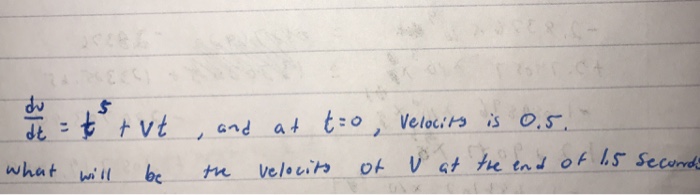 dv/dt = t^5 + vt , and at t=0, Velocity is 0.5.
what will be the velocity of V at the end of 1.5 seconds